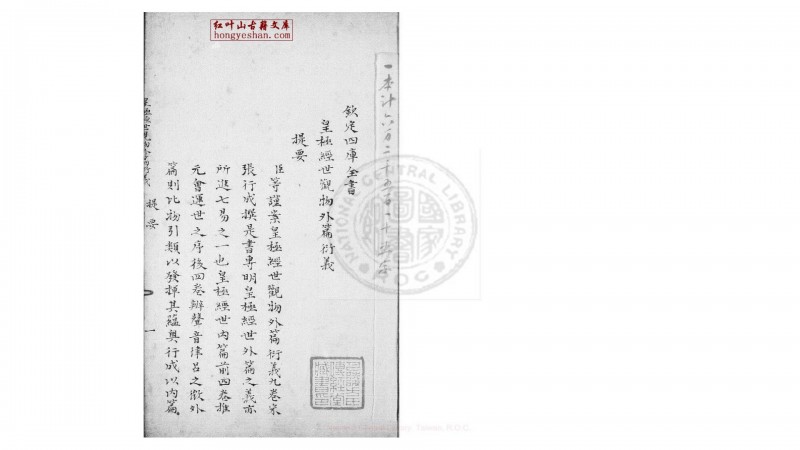 红叶山古籍文库
hongyeshan.com
一本計六万二千
欽定四庫全書
皇極經世觀物外篇衍義
提要
臣等謹案皇極經世觀物外篇衍義九卷宋
張行成撰是書專明皇極經世外篇之義亦
所進七易之一也皇極經世内篇前四卷推
元會運世之序後四卷辨聲音律吕之微外
篇則比物引類以發揮其藴奥行成以内篇
皇極經世觀物外篇衍義
提要
一
NATIONAL CENTRAL LIBRARY
R.O.C
國家圖書館
National Central Library, Taiwan, R.O.C